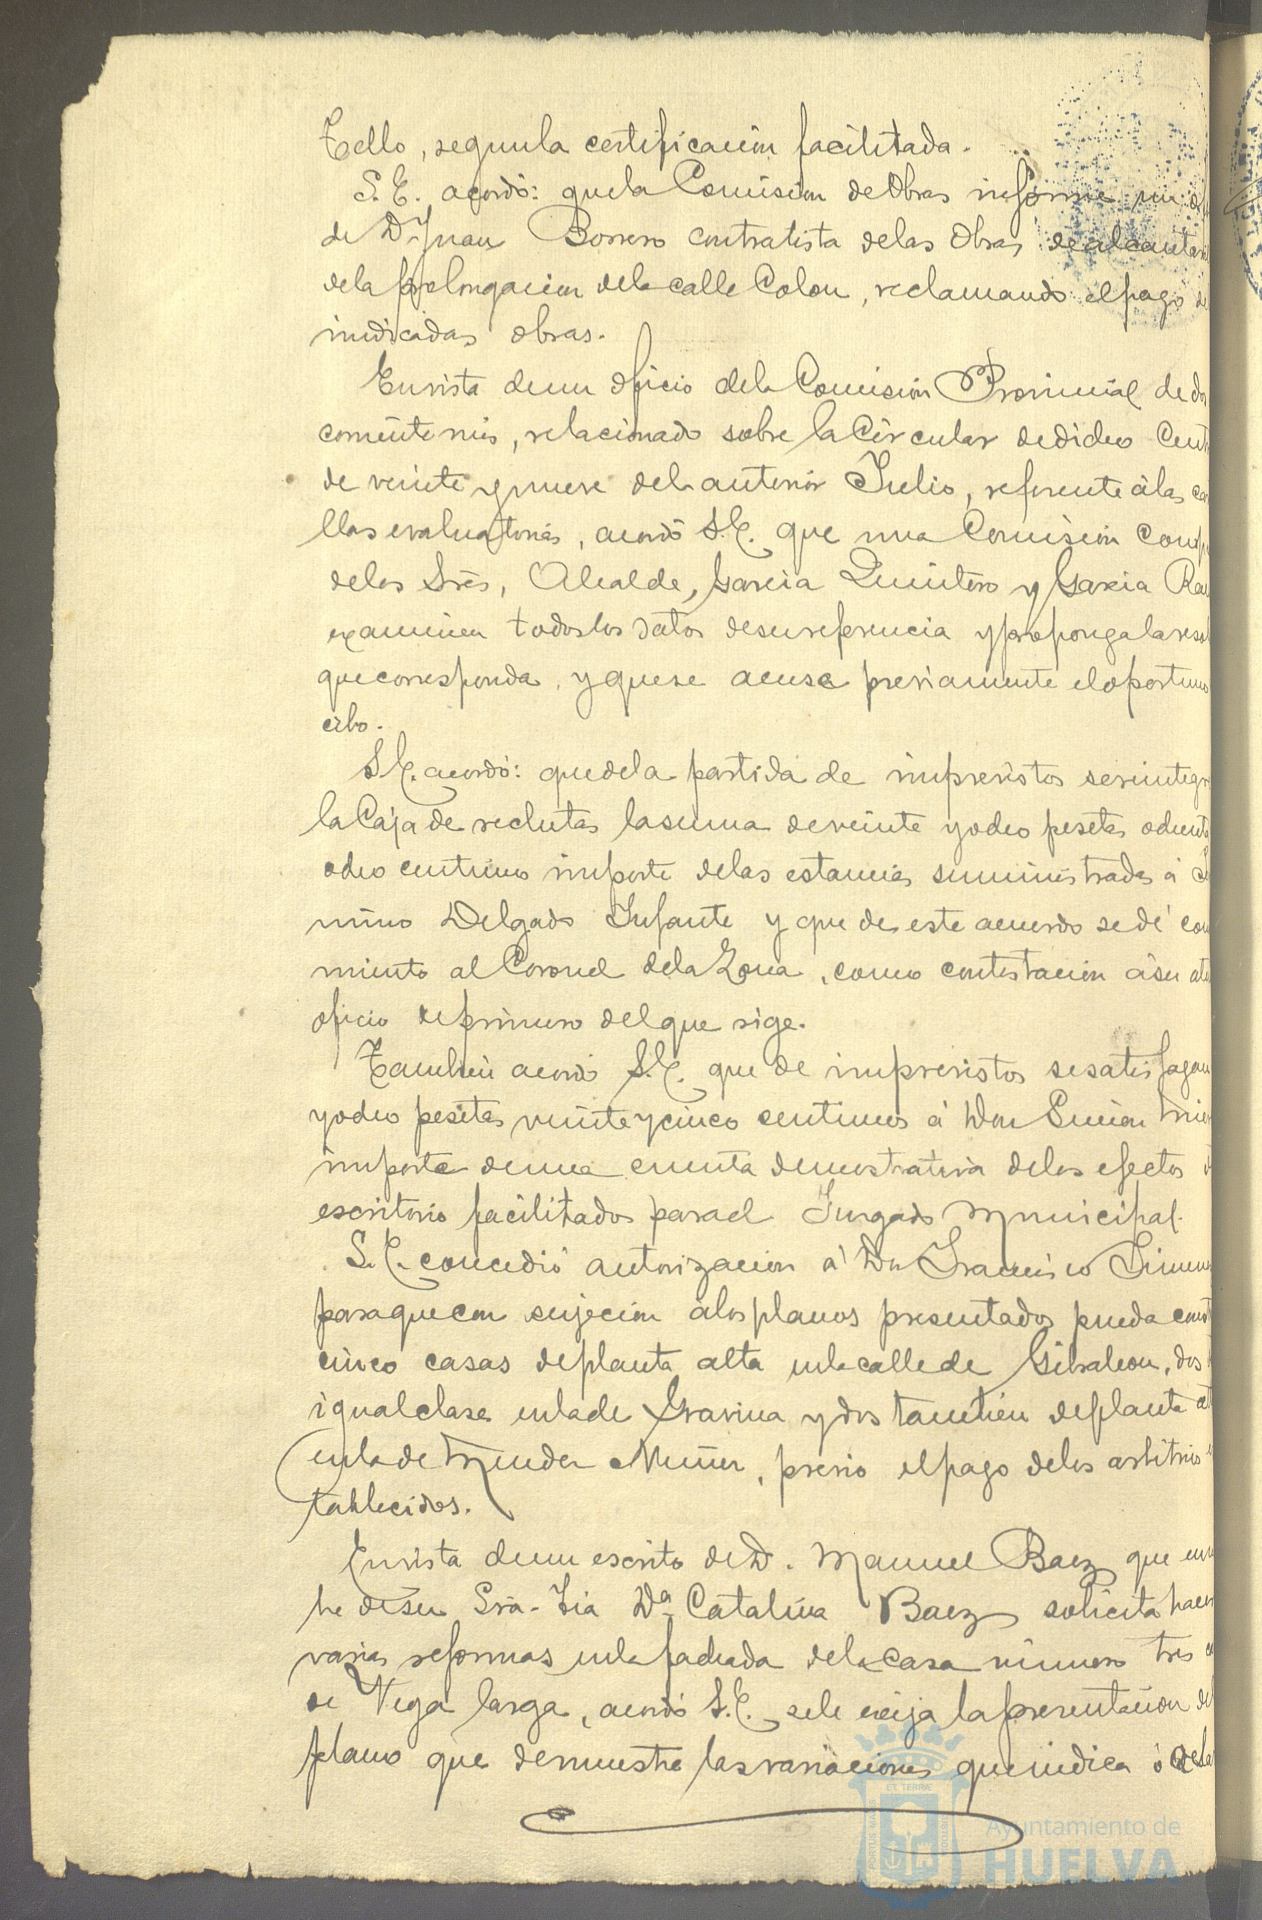 Tello, segun la certificación facilitada.
S. E. acordó: que la Comisión de Obras informe un
de D. Juan Borrero contratista de las Obras de alcanta
de la prolongación de la calle Colon, reclamando el pago de
indicadas obras.
En vista de un oficio de la Comisión Provincial de do
corriente mes, relacionado sobre la Circular de dicho Cent
de veinte y nueve del anterior Julio, referente á las ca
llas evaluatorias, acordó S. E. que una Comisión Comp
de los Srés, Alcalde, Garcia Quintero y Garcia Ra
examinen todos los datos de su referencia y proponga la resol
que corresponda, y que se acuse previamente el oportuno
cibo.
S. E. acordó: que de la partida de imprevistos se reintegr
la Caja de reclutas la suma de veinte y ocho pesetas ochenta
ocho centimos importe de las estancias suministradas á
mino Delgado Infante y que de este acuerdo se dé con
miento al Coronel de la Zona, como contestación á su at
oficio de primero del que rige.
Tambien acordó S. E. que de imprevistos se satisfagan
y ocho pesetas veinte y cinco centimos á Don Simón
importe de una cuenta demostrativa de los efectos d
escritorio facilitados para el Jurgado Municipal.
S. E. concedió autorización á Don Francisco Jimen
para que con sujeción a los planos presentados pueda const
cinco casas de planta alta en la calle de Gibraleon, dos
igual clase en la de Gravina y dos también de planta alt
en la de Mendez Nuñez, previo el pago de los arbitrios e
tablecidos.
En vista de un escrito de D. Manuel Baez que en n
be de su Srá. Tia Dª Catalina Baez solicita hacer
varias reformas en la fachada de la casa número tres
de Vega larga, acordó S. E. se le exija la presentación del
plano que demuestre las variaciones que indica ó dela
Ayuntamiento de
HUELVA